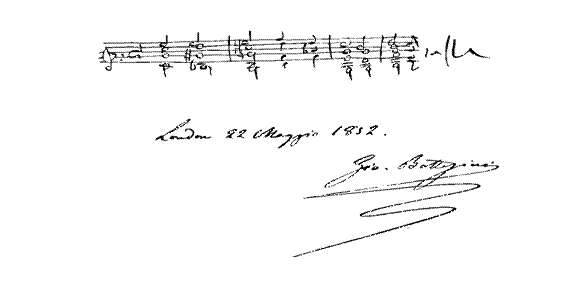 London 22 Maggio 1852.
Gio. Bottesini